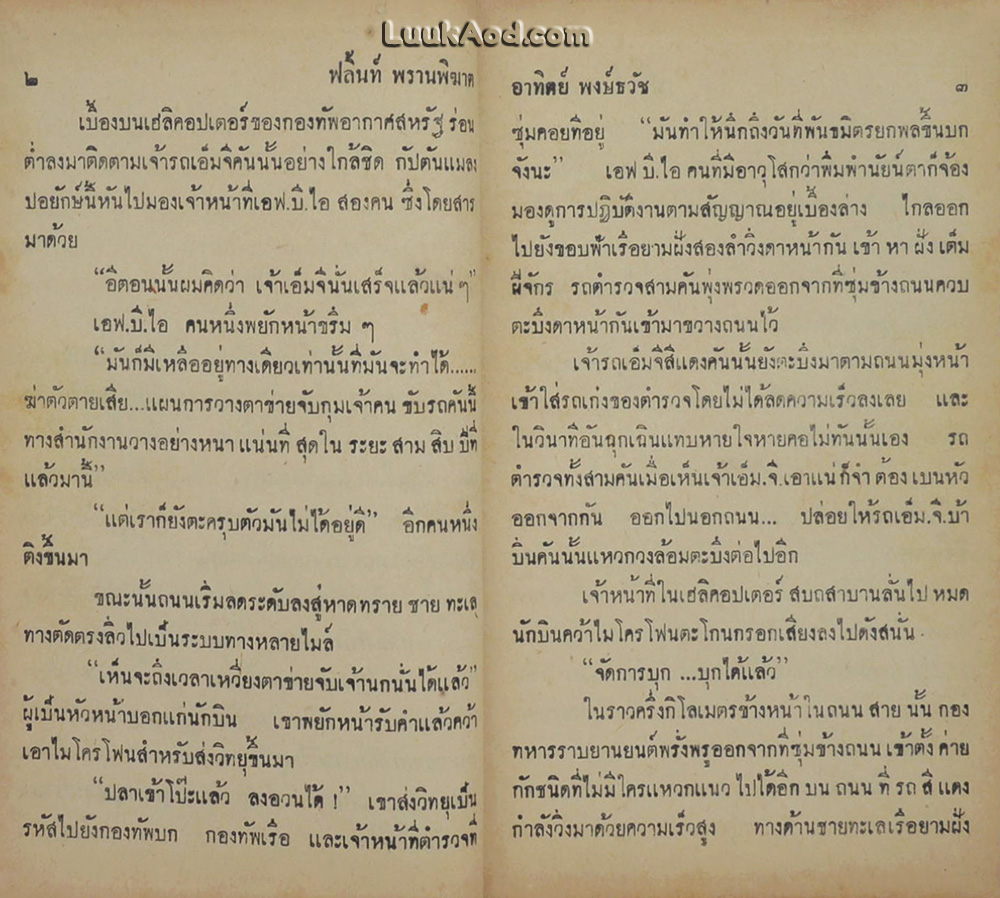 LuukAod.com
๒ ฟลิ้นท์ พรานพิฆาต
เบื้องบนเฮลิคอปเตอร์ของกองทัพอากาศสหรัฐ ร่อน
ต่ำลงมาติดตามเจ้ารถเอ็มจีคันนั้นอย่างใกล้ชิด กัปตันแมลง
ปอยักษ์นี้หันไปมองเจ้าหน้าที่เอฟ.บี.ไอ สองคน ซึ่งโดยสาร
มาด้วย
“อีตอนนั้นผมคิดว่า เจ้าเอ็มจีนั่นเสร็จแล้วแน่ ๆ”
เอฟ.บี.ไอ คนหนึ่งพยักหน้าขรึม ๆ
“มันก็มีเหลืออยู่ทางเดียวเท่านั้นที่มันจะทำได้......
ฆ่าตัวตายเสีย...แผนการวางตาข่ายจับกุมเจ้าคน ขับรถคันนี้
ทางสำนักงานวางอย่างหนา แน่นที่ สุดใน ระยะ สาม สิบ ปีที่
แล้วมานี้”
“แต่เราก็ยังตะครุบตัวมันไม่ได้อยู่ดี” อีกคนหนึ่ง
ติงขึ้นมา
ขณะนั้นถนนเริ่มลดระดับลงสู่หาดทราย ชาย ทะเล
ทางตัดตรงลิ่วไปเป็นระบบทางหลายไมล์
“เห็นจะถึงเวลาเหวี่ยงตาข่ายจับเจ้านกนั่นได้แล้ว”
ผู้เป็นหัวหน้าบอกแก่นักบิน เขาพยักหน้ารับคำแล้วคว้า
เอาไมโครโฟนสำหรับส่งวิทยุขึ้นมา
“ปลาเข้าโป๊ะแล้ว ลงอวนได้ !” เขาส่งวิทยุเป็น
รหัสไปยังกองทัพบก กองทัพเรือ และเจ้าหน้าที่ตำรวจที่
อาทิตย์ พงษ์ธวัช ๓
ซุ่มคอยทีอยู่ “มันทำให้นึกถึงวันที่พันธมิตรยกพลขึ้นบก
จังนะ” เอฟ บี.ไอ คนที่มีอาวุโสกว่าพึมพำนัยน์ตาก็จ้อง
มองดูการปฏิบัติงานตามสัญญาณอยู่เบื้องล่าง ไกลออก
ไปยังขอบฟ้าเรือยามฝั่งสองลำวิ่งดาหน้ากัน เข้า หา ฝั่ง เต็ม
ฝีจักร รถตำรวจสามคันพุ่งพรวดออกจากที่ซุ่มข้างถนนควบ
ตะบึงดาหน้ากันเข้ามาขวางถนนไว้
เจ้ารถเอ็มจีสีแดงคันนั้นยังตะบึงมาตามถนนมุ่งหน้า
เข้าใส่รถเก่งของตำรวจโดยไม่ได้ลดความเร็วลงเลย และ
ในวินาทีอันฉุกเฉินแทบหายใจหายคอไม่ทันนั้นเอง รถ
ตำรวจทั้งสามคันเมื่อเห็นเจ้าเอ็ม.จี.เอาแน่ ก็จำ ต้อง เบนหัว
ออกจากกัน ออกไปนอกถนน... ปล่อยให้รถเอ็ม.จี.บ้า
บิ่นคันนั้นแหวกวงล้อมตะบึงต่อไปอีก
เจ้าหน้าที่ในเฮลิคอปเตอร์ สบถสาบานลั่นไป หมด
นักบินคว้าไมโครโฟนตะโกนกรอกเสียงลงไปดังสนั่น
“จัดการบุก ...บุกได้แล้ว”
ในราวครึ่งกิโลเมตรข้างหน้าในถนน สาย นั้น กอง
ทหารราบยานยนต์พรั่งพรูออกจากที่ซุ่มข้างถนน เข้าตั้ง ค่าย
กักชนิดที่ไม่มีใครแหวกแนว ไปได้อีก บน ถนน ที่ รถ สี แดง
กำลังวิ่งมาด้วยความเร็วสูง ทางด้านชายทะเลเรือยามฝั่ง